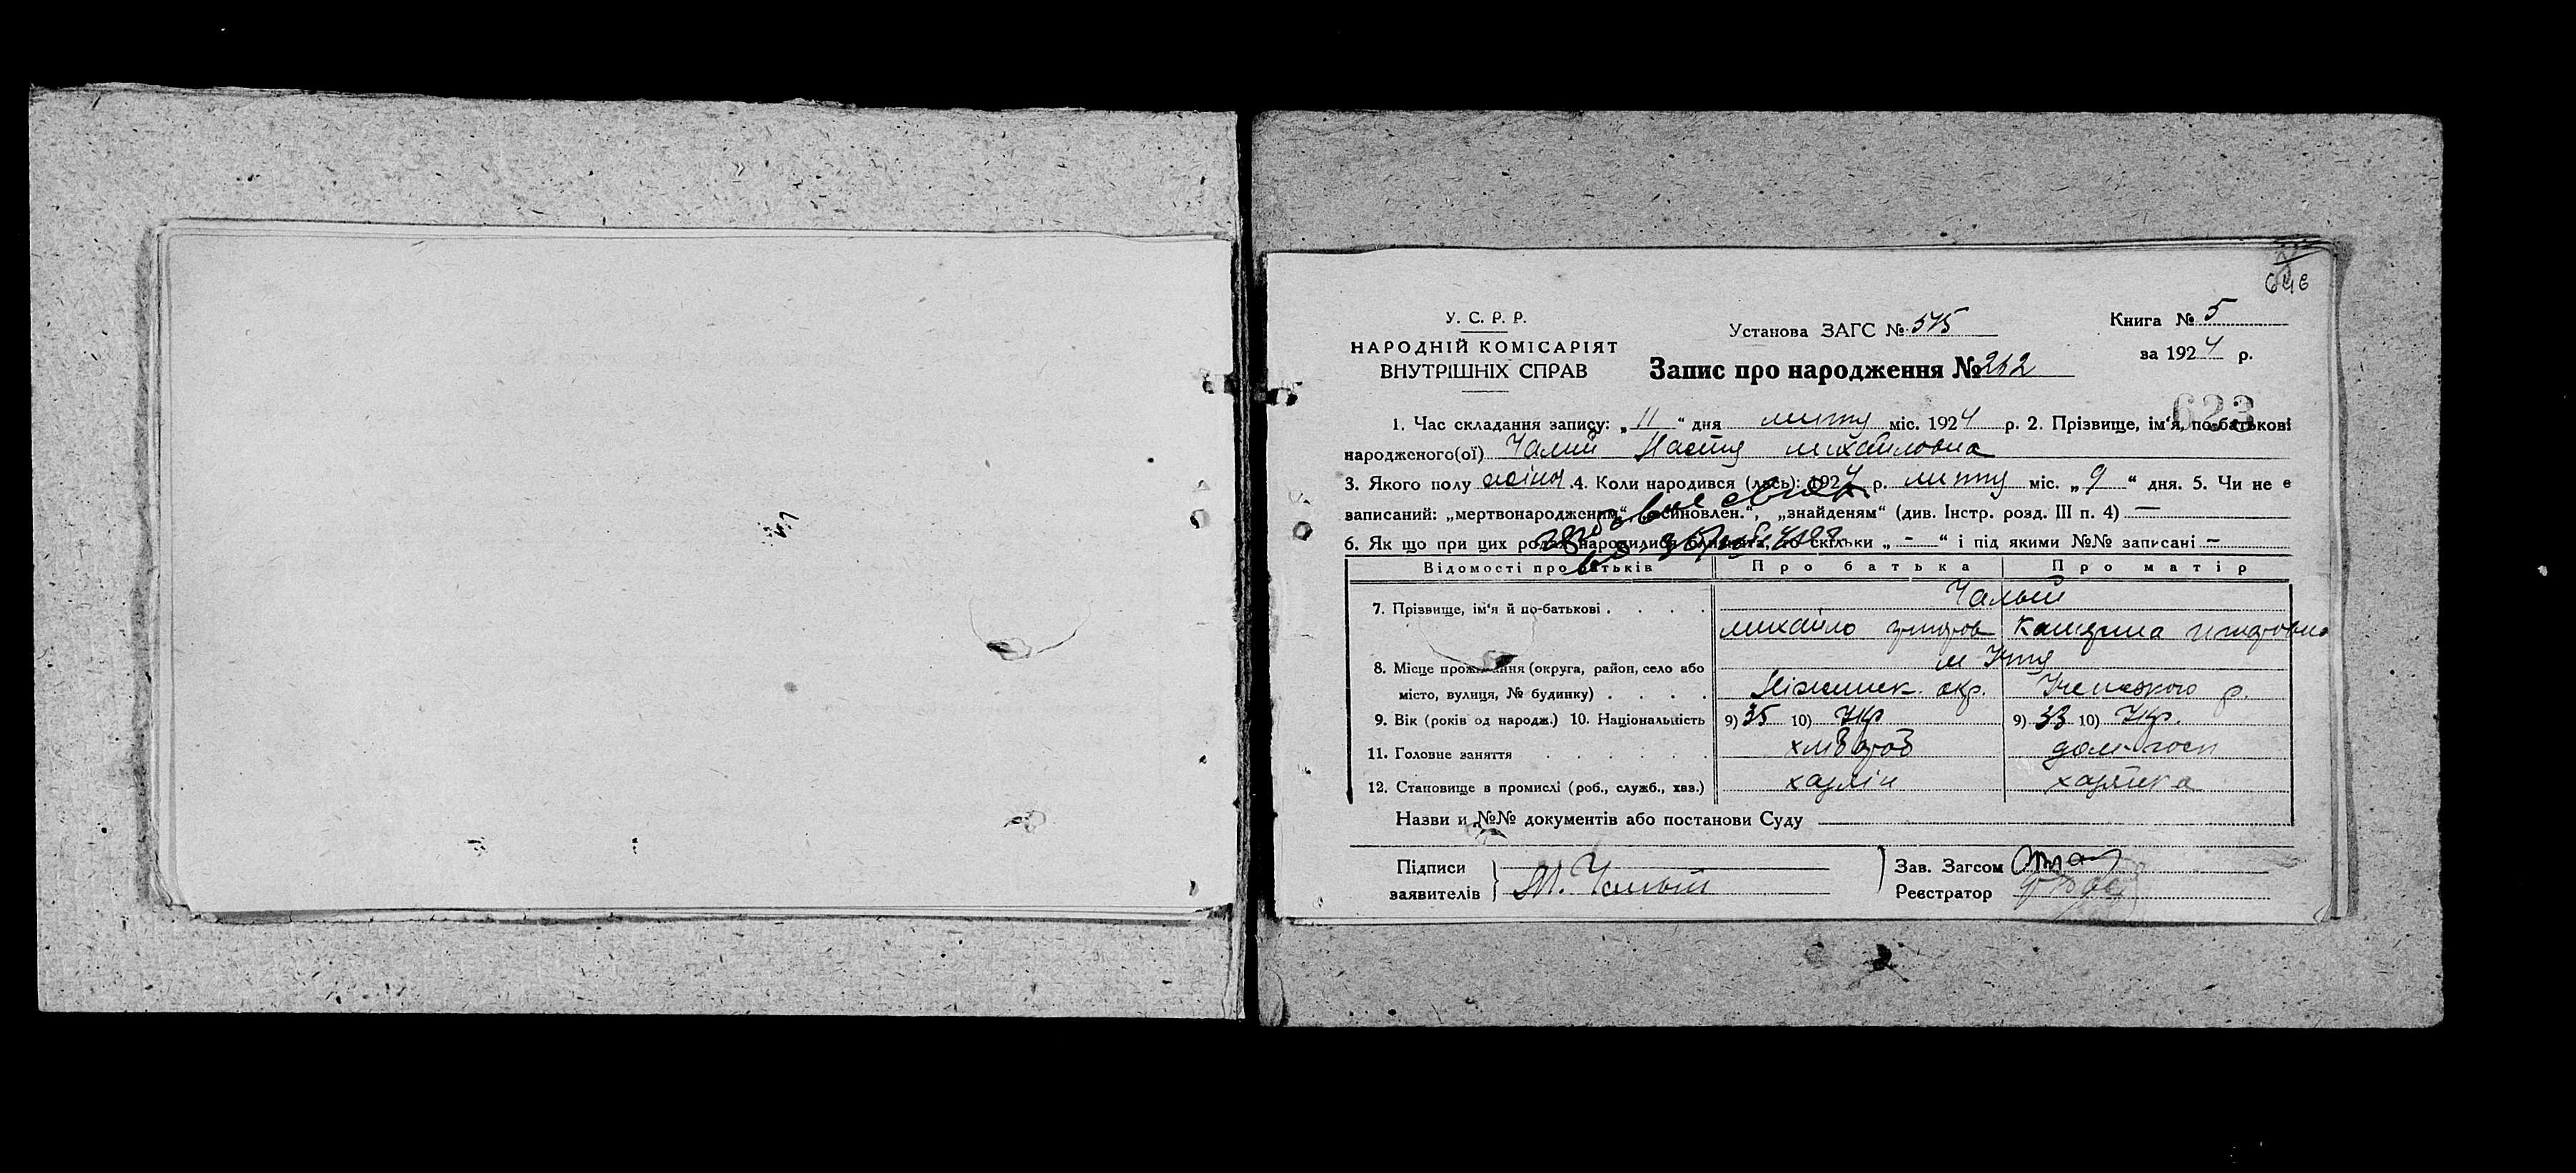 646
У. С. Р. Р.
НАРОДНІЙ КОМІСАРІЯТ
ВНУТРІШНІХ СПРАВ
Установа ЗАГС № 575
Запис про народження № 262
Книга № 5
за 1924 р.
623
1. Час складання запису: „11“ дня люту міс. 1924 р. 2. Прізвище, ім'я, по-батькові
народженого(ої) Чалий Настя михайловна
3. Якого полу жіноч. 4. Коли народився (лась): 1924 р. люту міс. „9“ дня. 5. Чи не є
записаний: „мертвонародженим“, „усиновлен.“, „знайденям“ (див. Інстр. розд. III п. 4) —
6. Як що при цих родах народилися близнята, то скільки „-“ і під якими №№ записані —
Відомості про батьків Про батька Про матір
7. Прізвище, ім'я й по-батькові . . . . Чалый
михайло Катерина
8. Місце проживання (округа, район, село або м Ічня
місто, вулиця, № будинку) . . . . Ніжинск. окр. Іченского р.
9. Вік (років од народж.) 10. Національність 9) 35 10) Укр 9) 33 10) Укр.
11. Головне заняття . . . . . . хлібороб дом. госп
12. Становище в промислі (роб., служб., хаз.) хазяін хазяйка
Назви и №№ документів або постанови Суду
Підписи
заявителів } М. Чалый
Зав. Загсом
Реєстратор